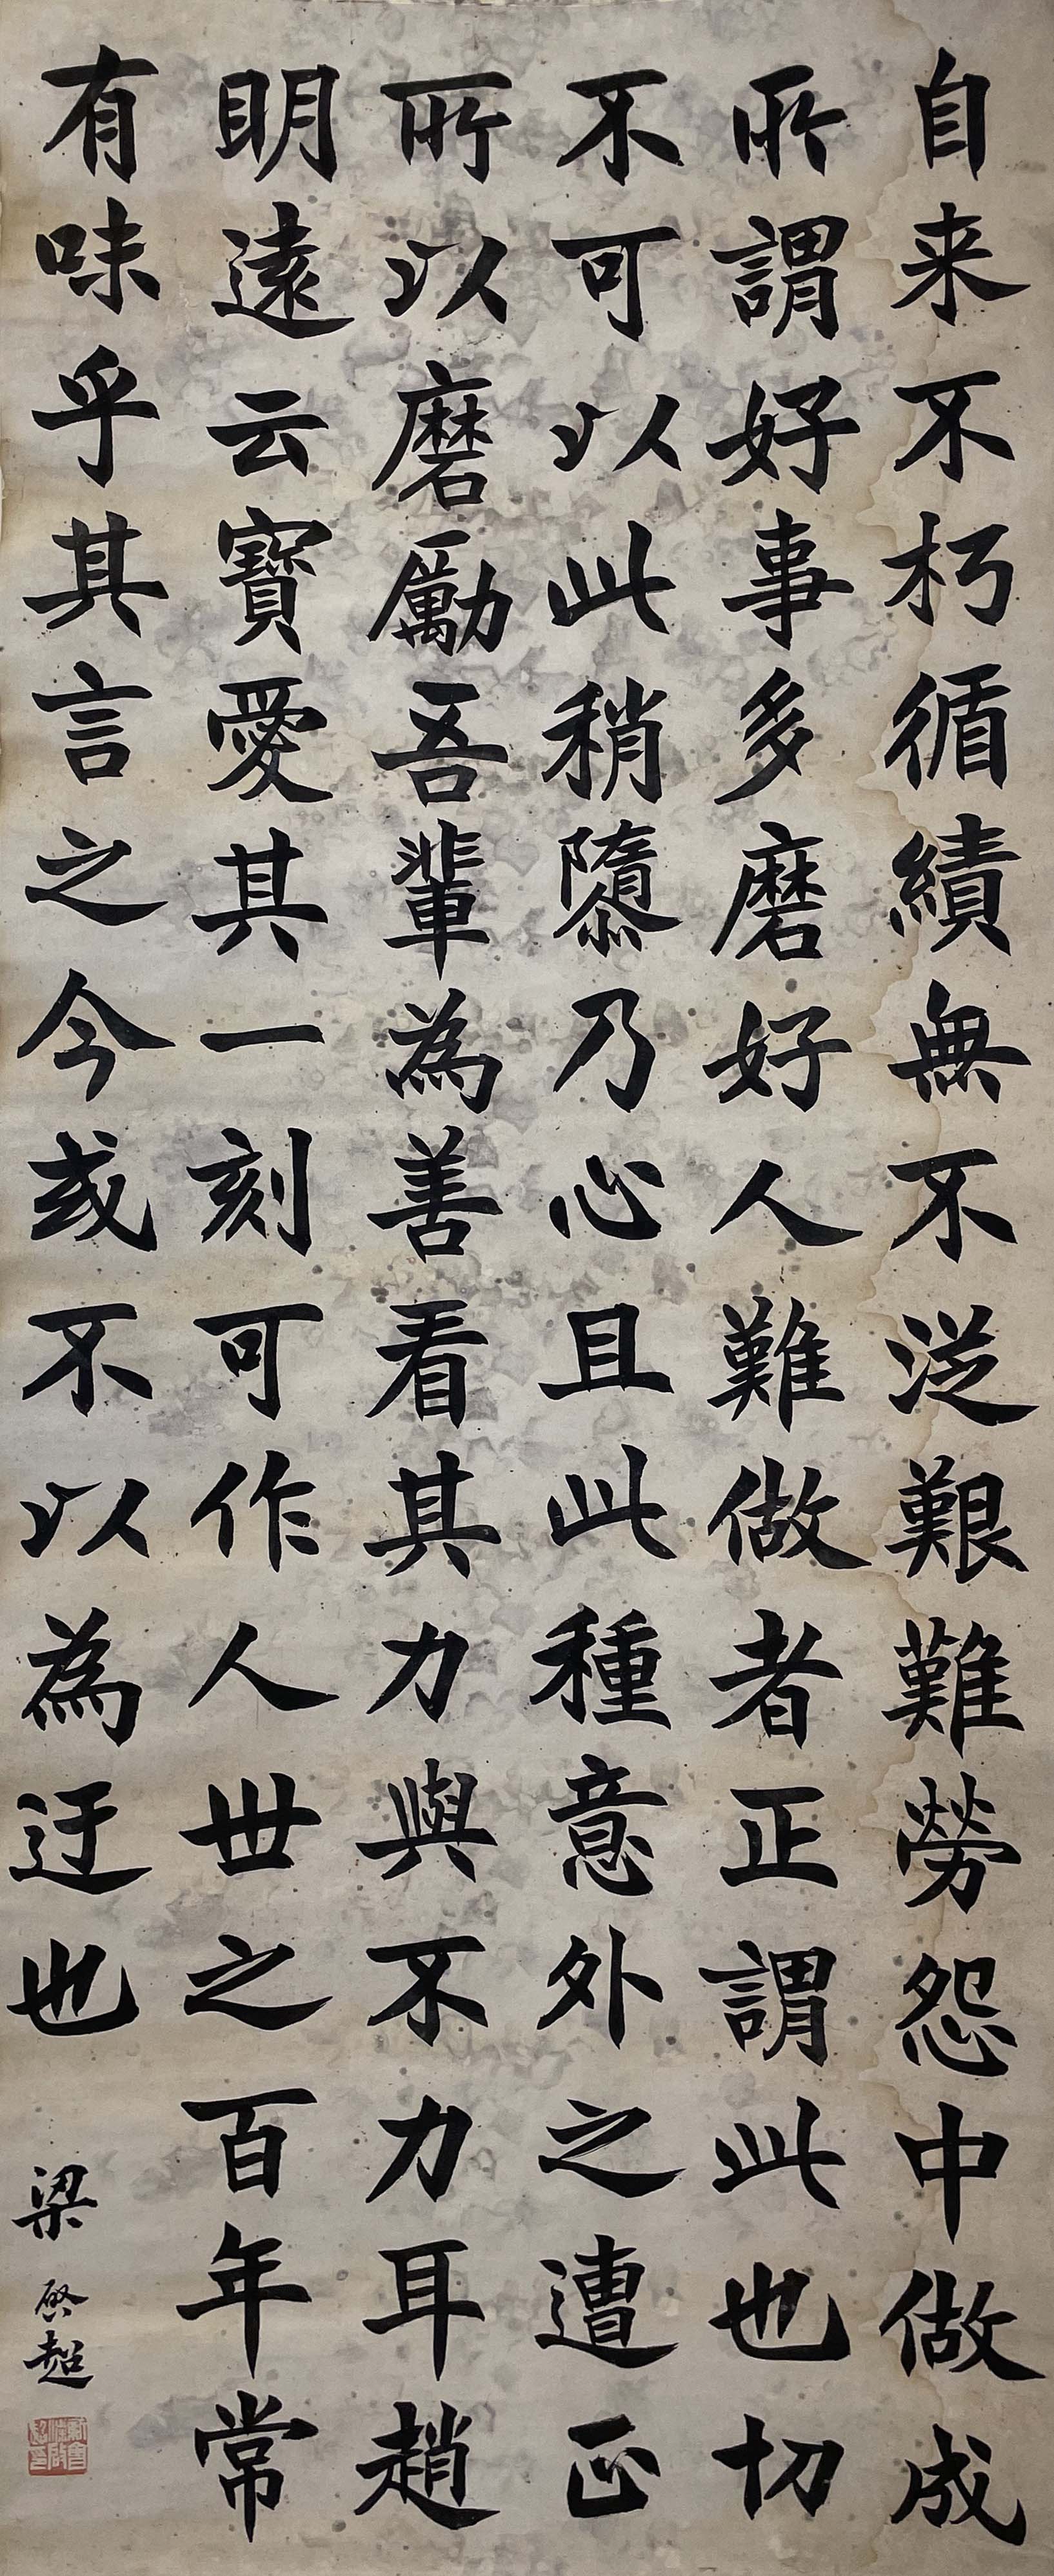 自来不朽循績無不從艱難勞怨中做成
所謂好事多磨好人難做者正謂此也切
不可以此稍隳乃心且此種意外之遭正
所以磨勵吾輩為善看其力與不力耳趙
明遠云寶愛其一刻可作人世之百年常
有味乎其言之今或不以為迂也
梁啓超